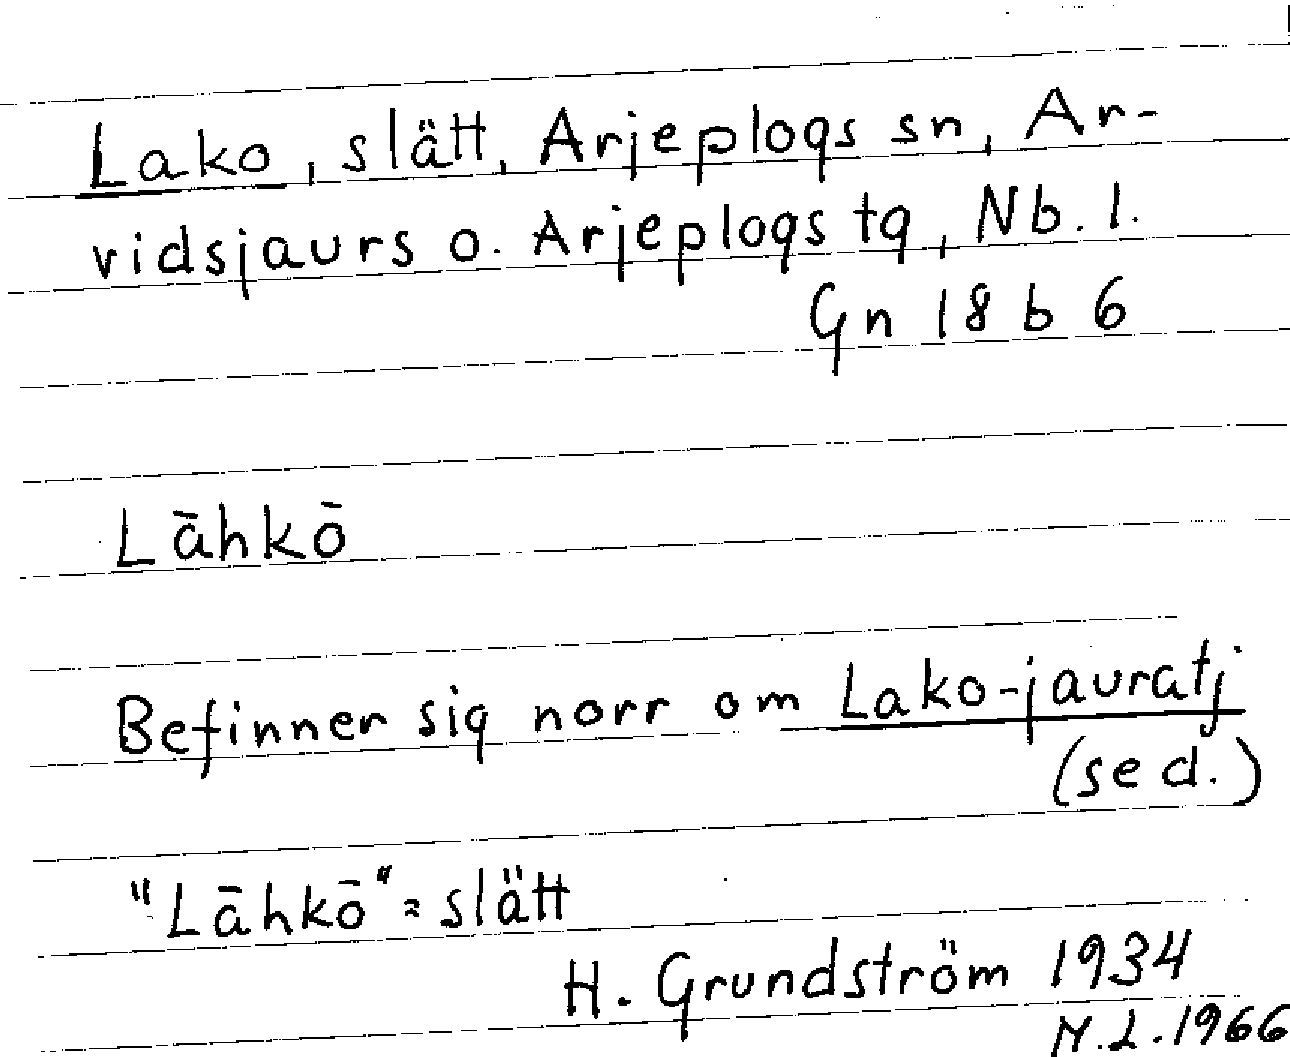 Lako, slätt, Arjeplogs sn, Ar-
vidsjaurs o. Arjeplogs tg, Nb. l.
Gn 18 b 6
Lāhkō
Befinner sig norr om Lako-jauratj
(se d.)
"Lāhkō" = slätt
H. Grundström 1934
N.L. 1966